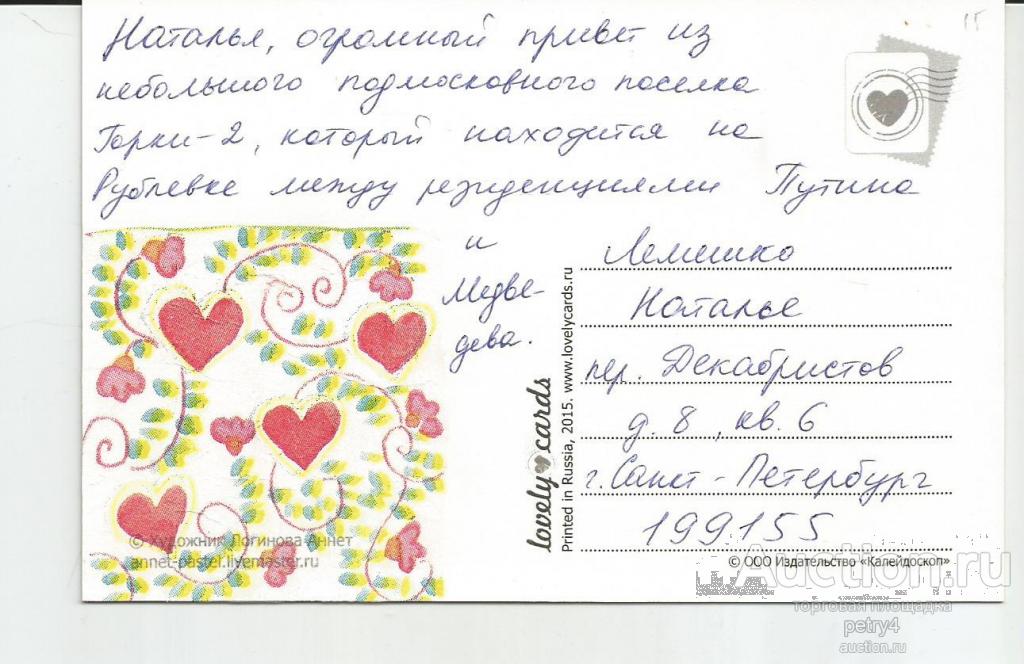 15
Наталья, огромный привет из
небольшого подмосковного поселка
Горки-2, который находится на
Рублевке между резиденциями Путина
и
Медве-
дева.
Лемешко
Наталье
пер. Декабристов
д. 8, кв. 6
г. Санкт-Петербург
199155
lovely cards
Printed in Russia, 2015. www.lovelycards.ru
© Художник Логинова Аннет
annet-pastel.livemaster.ru
© ООО Издательство «Калейдоскоп»
Auction.ru
торговая площадка
petry4
auction.ru